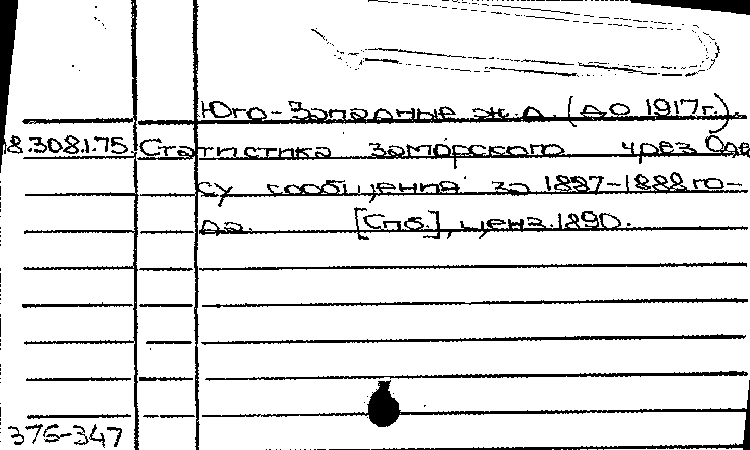 Юго-Западные ж.д. (до 1917г.).
8.308.1.75. Статистика заморского чрез Одес
су сообщения за 1887-1888 го-
да. [Спб.], ценз. 1890.
376-347